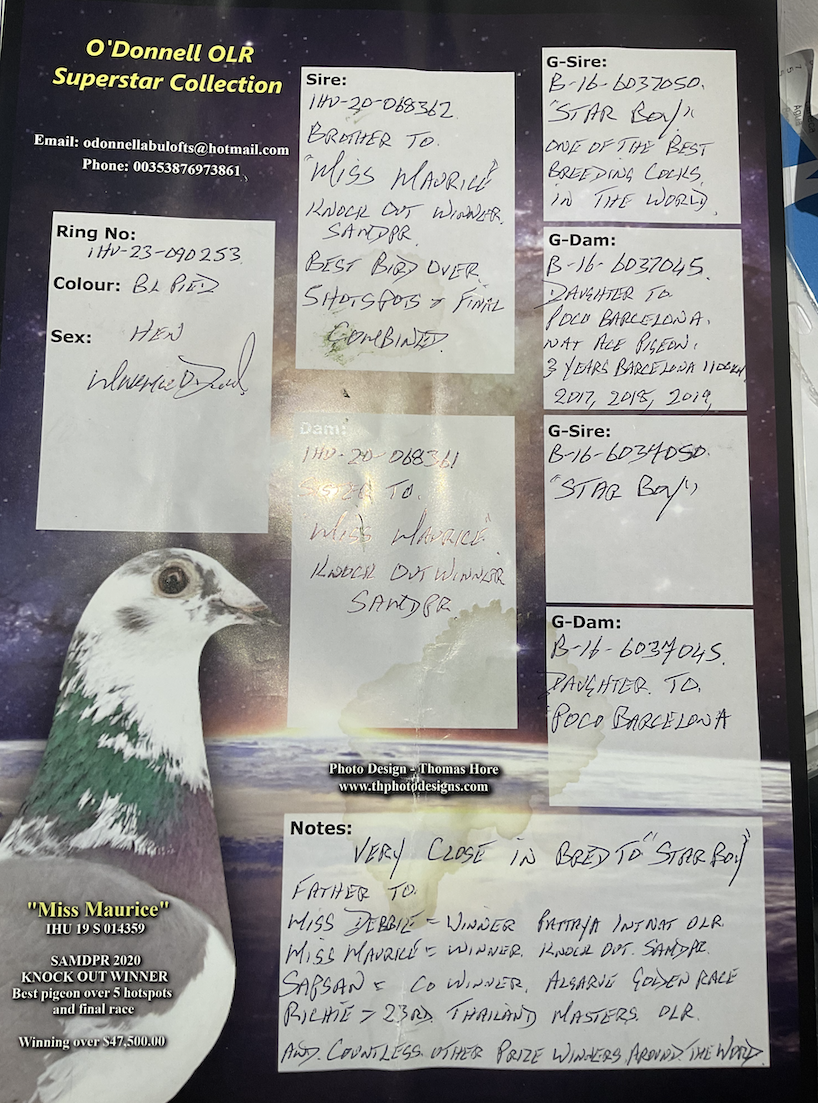 O'Donnell OLR
Superstar Collection
Email: odonnellabulofts@hotmail.com
Phone: 00353876973861
Ring No:
IHU-23-090253
Colour: BL PIED
Sex: HEN
Sire:
IHU-20-068362
BROTHER TO.
"MISS MAURICE"
KNOCK OUT WINNER.
SAMDPR.
BEST BIRD OVER
5 HOTSPOTS & FINAL
COMBINED.
Dam:
IHU-20-068361
SISTER TO.
"MISS MAURICE"
KNOCK OUT WINNER
SAMDPR
G-Sire:
B-16-6037050.
"STAR BOY"
ONE OF THE BEST
BREEDING COCKS
IN THE WORLD.
G-Dam:
B-16-6037045.
DAUGHTER TO.
POCO BARCELONA.
NAT ACE PIGEON.
3 YEARS BARCELONA
2017, 2018, 2019,
G-Sire:
B-16-6037050.
"STAR BOY"
G-Dam:
B-16-6037045.
DAUGHTER. TO.
POCO BARCELONA
Photo Design - Thomas Hore
www.thphotodesigns.com
Notes:
VERY CLOSE IN BRED TO "STAR BOY"
FATHER TO.
MISS DEBBIE = WINNER PATTAYA INTNAT OLR.
MISS MAURICE = WINNER. KNOCK OUT. SAMDPR.
SAPSAN = CO WINNER. ALGARVE GOLDEN RACE
RICHIE > 23RD THAILAND MASTERS. OLR.
AND. COUNTLESS. OTHER PRIZE WINNERS. AROUND. THE WORLD.
"Miss Maurice"
IHU 19 S 014359
SAMDPR 2020
KNOCK OUT WINNER
Best pigeon over 5 hotspots
and final race
Winning over $47,500.00